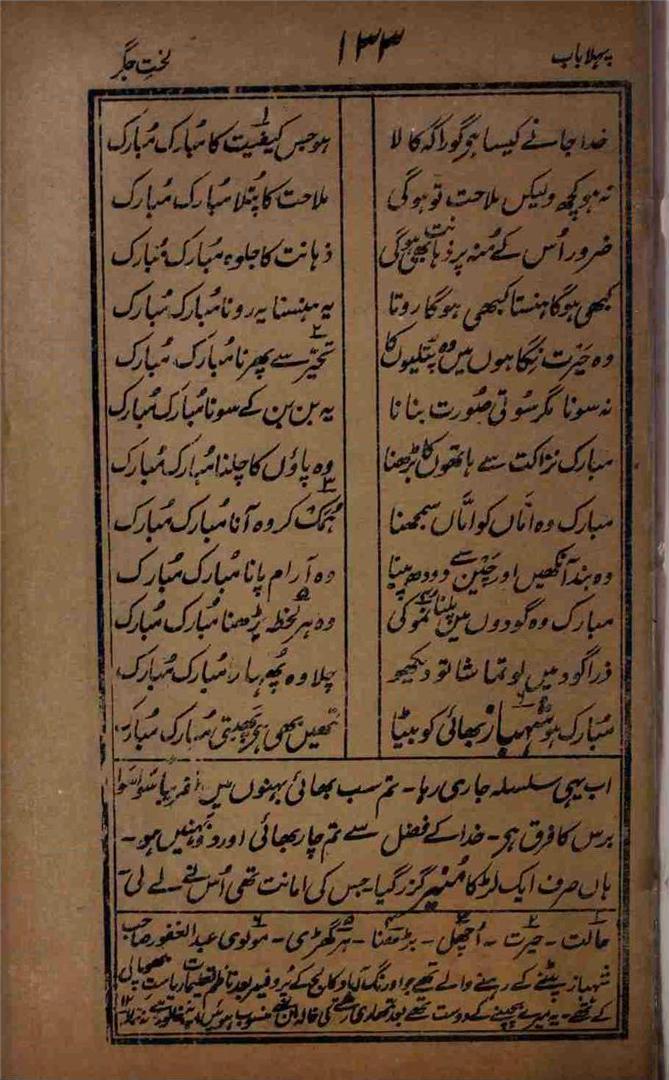 پہلا باب
۱۳۳
لختِ جگر
خدا جانے کیسا ہو گورا کہ کالا
ہو جس کیفیت کا مُبارک مُبارک
نہ ہو کچھ ولیکن ملاحت تو ہوگی
ملاحت کا پُتلا مُبارک مُبارک
ضرور اُس کے مُنہ پر ذہانت بھی ہوگی
ذہانت کا جلوہ مُبارک مُبارک
کبھی ہوگا ہنستا کبھی ہوگا روتا
یہ ہنسنا یہ رونا مُبارک مُبارک
وہ حیرت نگاہوں میں وہ پتلیوں کا
تحیّر سے پھرنا مُبارک مُبارک
نہ سونا مگر سوتی صُورت بنانا
یہ بن بن کے سونا مُبارک مُبارک
مبارک نزاکت سے ہاتھوں کا بڑھنا
وہ پاؤں کا چلنا مُبارک مُبارک
مبارک وہ امّاں کو امّاں سمجھنا
ہُمک کر وہ آنا مُبارک مُبارک
وہ بند آنکھیں اور چین سے دودھ پینا
وہ آرام پانا مُبارک مُبارک
مبارک وہ گودوں میں پلنا نمو کی
وہ ہر لحظہ بڑھنا مُبارک مُبارک
ذرا گود میں لو تماشا تو دیکھو
چلا وہ پھُہارا مُبارک مُبارک
مُبارک ہو شہباز بھائی کو بیٹا
تمھیں بھی بھتیجی مُبارک مُبارک
اب یہی سلسلہ جاری رہا۔ تم سب بھائی بہنوں میں تقریباً سوا سوا
برس کا فرق ہی۔ خدا کے فضل سے تم چار بھائی اور دو بہنیں ہو۔
ہاں صرف ایک لڑکا مُنیر گزر گیا۔ جس کی امانت تھی اُس نے لے لی۔
۱ حالت۔ ۲ حیرت۔ ۳ اُچھل۔ ۴ بڑھنا۔ ۵ ہر گھڑی۔ ۶ مولوی عبد الغفور صاحب
شہباز پٹنے کے رہنے والے تھے جو اورنگ آباد کالج کے پروفیسر بعد ناظم تعلیمات ریاستِ بھوپال
کے تھے۔ یہ میرے بچپنے کے دوست تھے بعد تمھاری رشتے کی خالہ ان سے منسوب ہوئیں